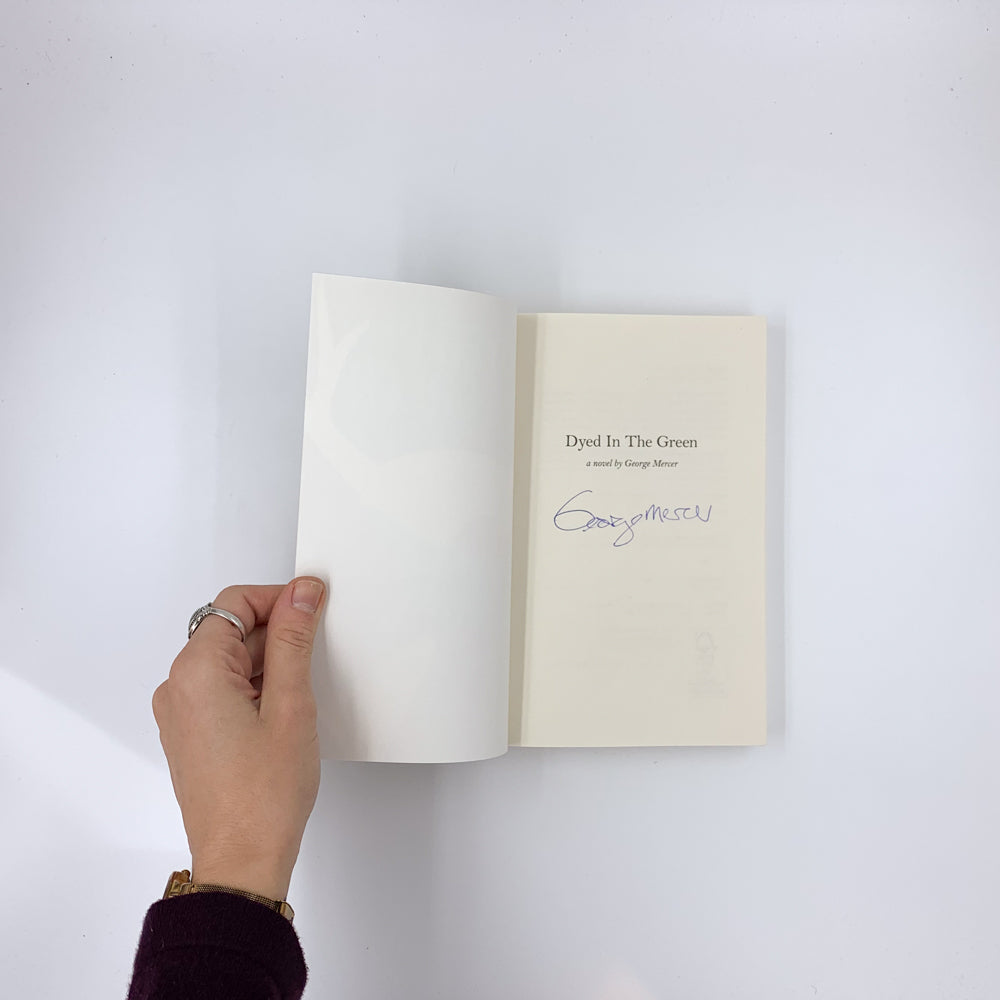 Dyed In The Green
a novel by George Mercer
George Mercer